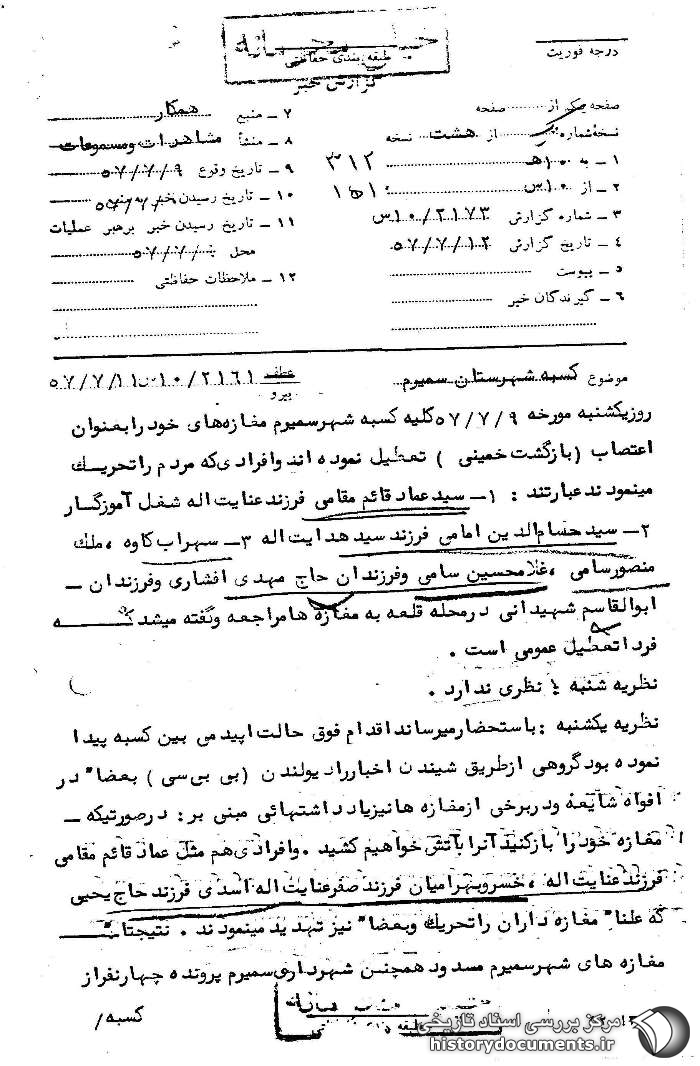 خیلی محرمانه
طبقه بندی حفاظتی
گزارش خبر
درجه فوریت
صفحه یک از صفحه
نسخه شماره از هشت نسخه
۱ – به ۱۰۰ هـ ۳۱۲
۲ – از ۱۰ س ۱ﻫ۱
۳ – شماره گزارش ۱۰/۲۱۷۳س
۴ – تاریخ گزارش ۵۷/۷/۱۲
۵ – پیوست
۶ – گیرندگان خبر
۷ – منبع همکار
۸ – منشأ مشاهدات ومسموعات
۹ – تاریخ وقوع ۵۷/۷/۹
۱۰ – تاریخ رسیدن خبر به منبع
۱۱ – تاریخ رسیدن خبر برهبر عملیات
محل ۵۷/۷/
۱۲ – ملاحظات حفاظتی
موضوع کسبه شهرستان سمیرم
عطف ۱۰/۲۱۶۱س ۵۷/۷/۱۱
پیرو
روزیکشنبه مورخه ۵۷/۷/۹ کلیه کسبه شهرسمیرم مغازه‌های خود رابعنوان
اعتصاب (بازگشت خمینی ) تعطیل نموده اند وافرادی‌که مردم راتحریک
مینمودند عبارتند : ۱– سیدعماد قائم مقامی فرزند عنایت اله شغل آموزگار
۲– سید حسام‌الدین امامی فرزند سید هدایت اله ۳– سهراب کاوه ، ملک
منصورسامی ، غلامحسین سامی وفرزندان حاج مهدی افشاری وفرزندان –
ابوالقاسم شهیدانی درمحله قلعه به مغازه هامراجعه وگفته میشدکه
فردا تعطیل عمومی است .
نظریه شنبه : نظری ندارد .
نظریه یکشنبه : باستحضارمیرساند اقدام فوق حالت اپیدمی بین کسبه پیدا
نموده بود گروهی ازطریق شیندن اخبارراد یولندن (بی بی سی ) بعضا" در
افواه شایعه ودربرخی ازمغازه هانیزیاد داشتهائی مبنی بر: درصورتیکه –
مغازه خود را بازکنید آنرا بآتش خواهیم کشید . وافرادی هم مثل عماد قائم مقامی
فرزند عنایت اله ، خسروبهرامیان فرزند صفرعنایت اله اسدی فرزند حاج یحیی
که علنا" مغازه داران راتحریک وبعضا" نیز تهدید مینمودند . نتیجتا"
مغازه های شهرسمیرم مسدود همچنین شهرداری‌سمیرم پرونده چهارنفراز
کسبه /
مرکز بررسی اسناد تاریخی
historydocuments.ir